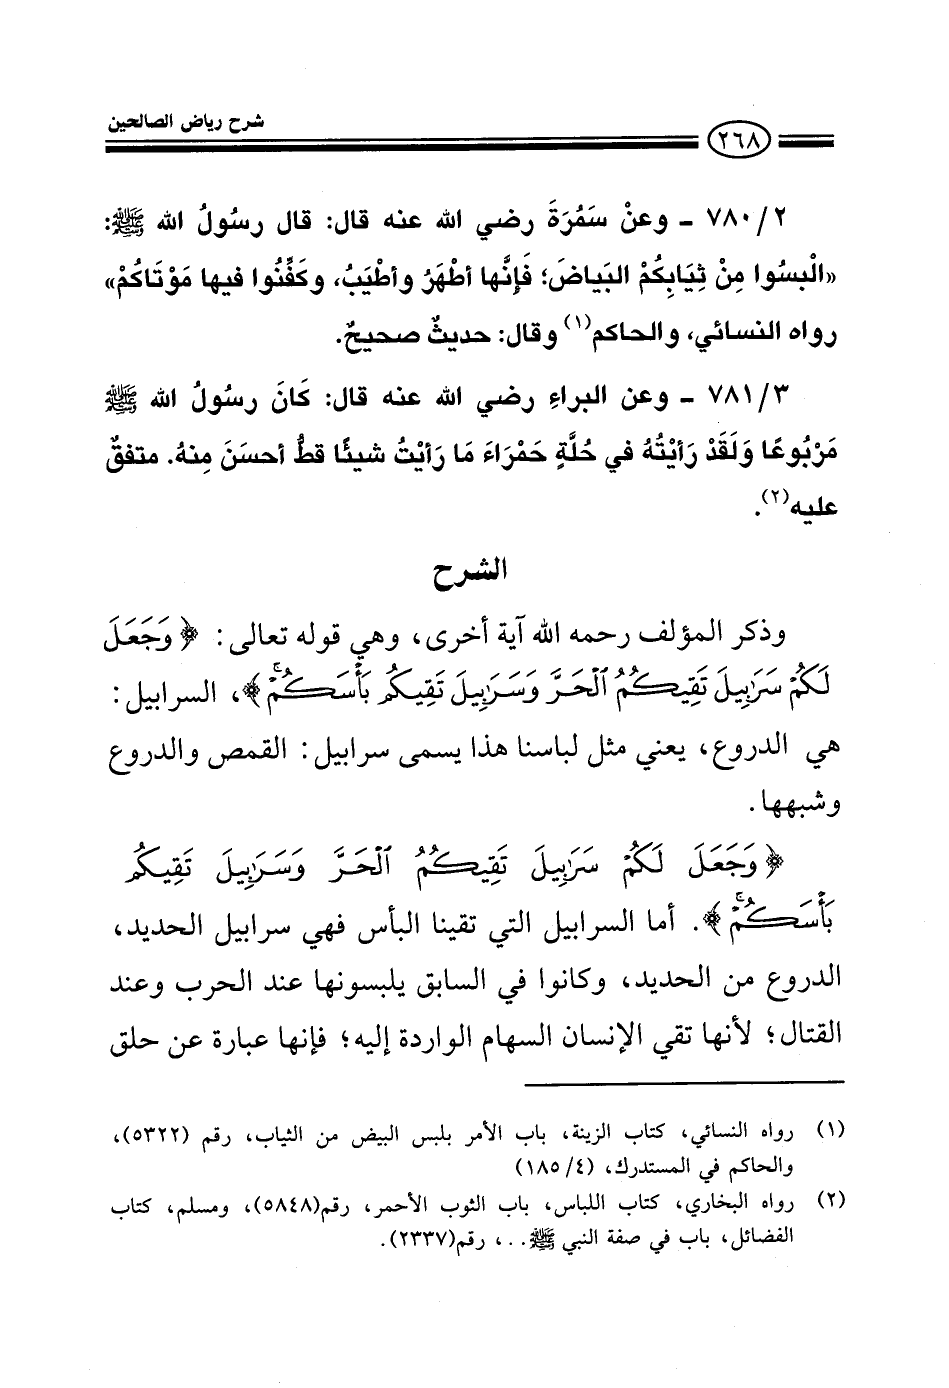 شرح رياض الصالحين
٢٦٨
٧٨٠/٢ ـ وعنْ سَمُرَةَ رضي الله عنه قال: قال رسُولُ الله ﷺ:
«الْبسُوا مِنْ ثِيَابِكُمْ البَياضَ؛ فَإِنَّها أطْهَرُ وأطْيَبُ، وكَفِّنُوا فيها مَوْتَاكُمْ»
رواه النسائي، والحاكم(١) وقال: حديثٌ صحيحٌ.
٧٨١/٣ ـ وعن البراءِ رضي الله عنه قال: كَانَ رسُولُ الله ﷺ
مَرْبُوعًا وَلَقَدْ رَأيْتُهُ في حُلَّةٍ حَمْرَاءَ مَا رَأيْتُ شيئًا قطُّ أحسَنَ مِنهُ. متفقٌ
عليه(٢).
الشرح
وذكر المؤلف رحمه الله آية أخرى، وهي قوله تعالى: ﴿وَجَعَلَ
لَكُمْ سَرَٰبِيلَ تَقِيكُمُ ٱلْحَرَّ وَسَرَٰبِيلَ تَقِيكُم بَأْسَكُمْۚ﴾، السرابيل:
هي الدروع، يعني مثل لباسنا هذا يسمى سرابيل: القمص والدروع
وشبهها.
﴿وَجَعَلَ لَكُمْ سَرَٰبِيلَ تَقِيكُمُ ٱلْحَرَّ وَسَرَٰبِيلَ تَقِيكُم
بَأْسَكُمْۚ﴾. أما السرابيل التي تقينا البأس فهي سرابيل الحديد،
الدروع من الحديد، وكانوا في السابق يلبسونها عند الحرب وعند
القتال؛ لأنها تقي الإنسان السهام الواردة إليه؛ فإنها عبارة عن حلق
(١) رواه النسائي، كتاب الزينة، باب الأمر بلبس البيض من الثياب، رقم (٥٣٢٢)،
والحاكم في المستدرك، (١٨٥/٤)
(٢) رواه البخاري، كتاب اللباس، باب الثوب الأحمر، رقم(٥٨٤٨)، ومسلم، كتاب
الفضائل، باب في صفة النبي ﷺ..، رقم(٢٣٣٧).